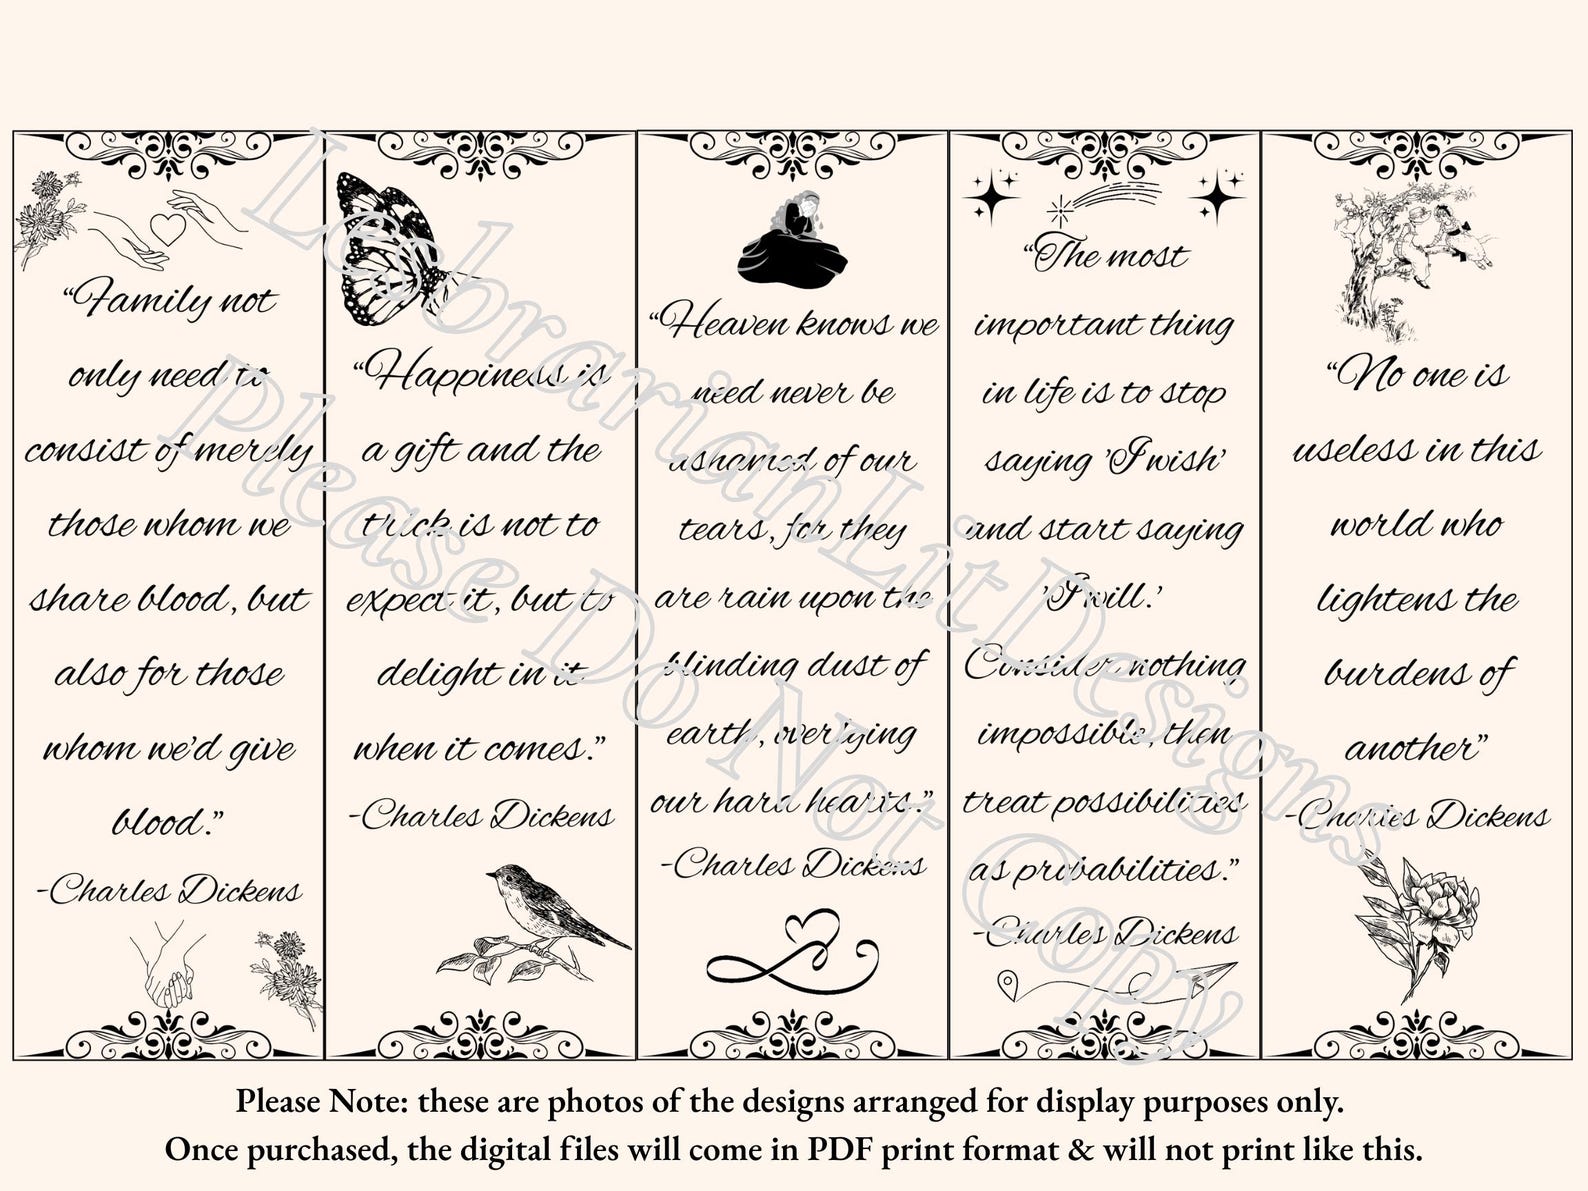 “Family not
only need to
consist of merely
those whom we
share blood, but
also for those
whom we’d give
blood.”
-Charles Dickens
“Happiness is
a gift and the
trick is not to
expect it, but to
delight in it
when it comes.”
-Charles Dickens
“Heaven knows we
need never be
ashamed of our
tears, for they
are rain upon the
blinding dust of
earth, overlying
our hard hearts.”
-Charles Dickens
“The most
important thing
in life is to stop
saying 'I wish'
and start saying
'I will.'
Consider nothing
impossible, then
treat possibilities
as probabilities.”
-Charles Dickens
“No one is
useless in this
world who
lightens the
burdens of
another”
-Charles Dickens
LeibrarianLitDesigns
Please Do Not Copy
Please Note: these are photos of the designs arranged for display purposes only.
Once purchased, the digital files will come in PDF print format & will not print like this.